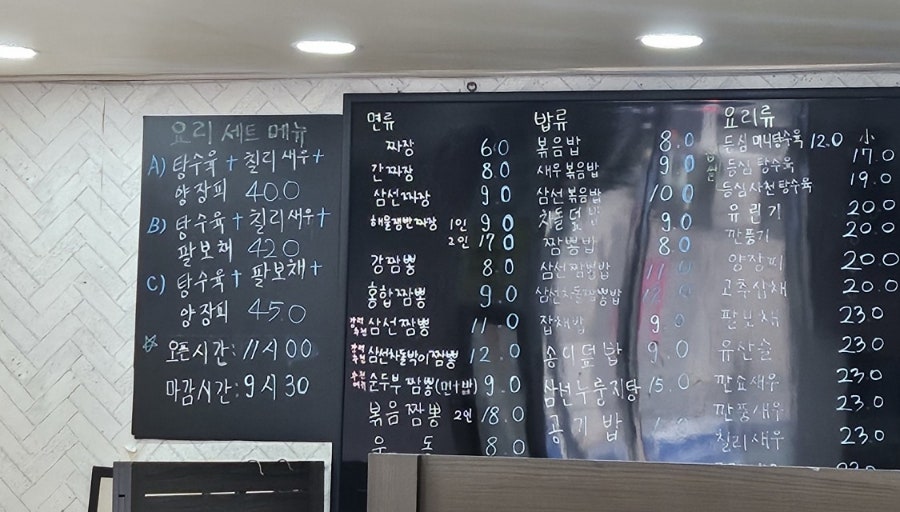 요리 세트 메뉴
A) 탕수육 + 칠리새우 +
양장피 40.0
B) 탕수육 + 칠리새우 +
팔보채 42.0
C) 탕수육 + 팔보채 +
양장피 45.0
☆ 오픈시간: 11시 00
마감시간: 9시 30
면류
짜장 6.0
간짜장 8.0
삼선짜장 9.0
해물쟁반짜장 1인 9.0
2인 17.0
강짬뽕 8.0
홍합짬뽕 9.0
삼선짬뽕 11.0
삼선차돌박이짬뽕 12.0
순두부 짬뽕(면+밥) 9.0
볶음짬뽕 2인 18.0
우동 8.0
밥류
볶음밥 8.0
새우볶음밥 9.0
삼선볶음밥 10.0
차돌덮밥 9.0
짬뽕밥 8.0
삼선짬뽕밥 11.0
삼선차돌짬뽕밥 12.0
잡채밥 9.0
송이덮밥 9.0
삼선누룽지탕 15.0
공기밥
요리류
등심 미니탕수육 12.0 小
등심 탕수육 17.0
등심사천탕수육 19.0
유린기 20.0
깐풍기 20.0
양장피 20.0
고추잡채 20.0
팔보채 23.0
유산슬 23.0
깐쇼새우 23.0
깐풍새우 23.0
칠리새우 23.0